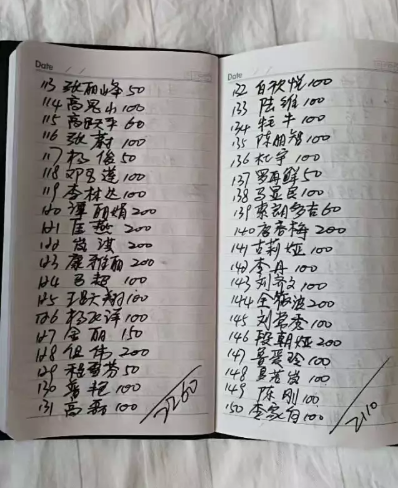 Date
113 张丽峰 50
114 高思小 100
115 高跃平 60
116 张蔚 100
117 杨俊 50
118 邓昌莲 100
119 李林达 100
120 谭丽娟 200
121 匡燕 200
122 岚淇 200
123 廖雅丽 200
124 马超 100
125 王昊翔 100
126 杨永泽 100
127 金丽 150
128 但伟 200
129 程雪芬 50
130 普艳 100
131 高磊 100
3260
Date
132 白秋悦 100
133 陆维 100
134 牛 100
135 陈丽智 100
136 杜宇 100
137 罗再鲜 50
138 马显良 100
139 朗多吉 60
140 唐春梅 200
141 古莉娅 100
142 李丹 100
143 刘文 100
144 金海波 200
145 刘秀 100
146 段朝娅 200
147 玲 100
148 岚 100
149 陈刚 100
150 李家白 100
2110